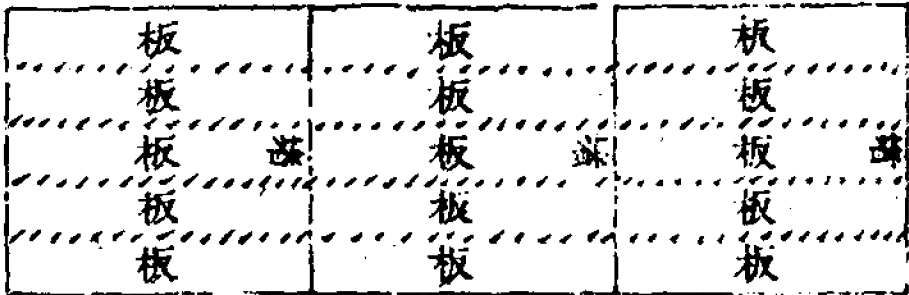 板 板 板
板 板 板
板 板 板
板 板 板
板 板 板